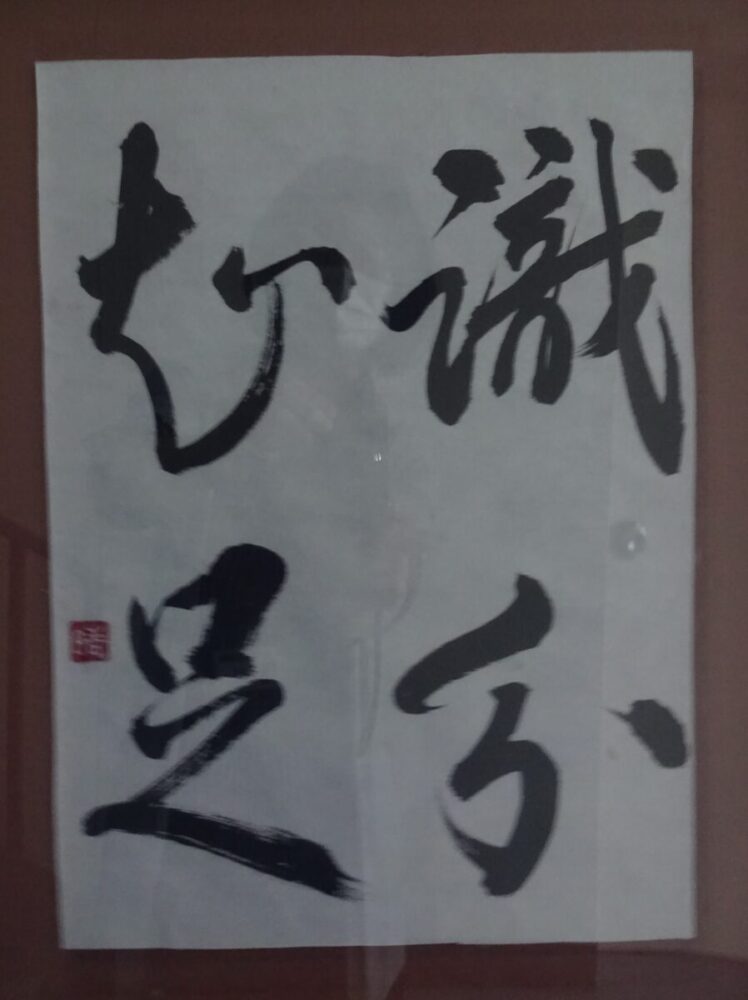 識分
知足